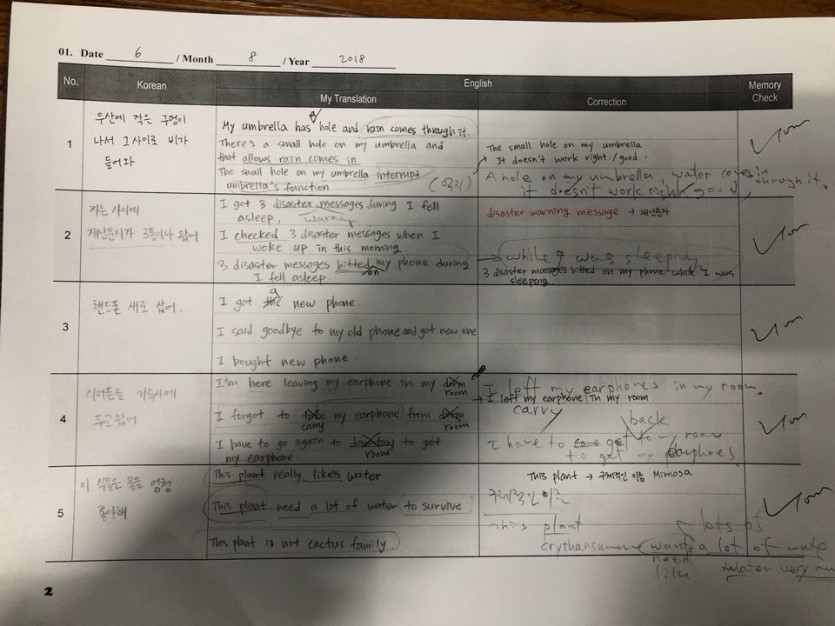 01. Date 6 / Month 8 / Year 2018
No. Korean English Memory Check
My Translation Correction
1
우산에 작은 구멍이
나서 그 사이로 비가
들어와
My umbrella has hole and rain comes through it.
There's a small hole on my umbrella and
that allows rain comes in.
The small hole on my umbrella interrupt
umbrella's function
The small hole on my umbrella
→ It doesn't work right / good.
A hole on my umbrella, water comes in through it.
it doesn't work right good
2
자는 사이에
재난문자가 3통이나 왔어
I got 3 disaster messages during I fell
asleep. warning
I checked 3 disaster messages when I
woke up in this morning
3 disaster messages hitted on my phone during
I fell asleep.
disaster warning message → 재난문자
while I was sleeping
3 disaster messages hitted on my phone while I was
sleeping.
3
핸드폰 새로 샀어.
I got a new phone.
I said goodbye to my old phone and got new one
I bought new phone.
4
이어폰을 기숙사에
두고 왔어
I'm here leaving my earphone in my dorm
room
I forgot to take my earphone from dorm
carry room
I have to go again to dormitory to get
room
my earphone.
I left my earphones in my room.
→ I left my earphone in my room
carry back
I have to go get to my room
to get my earphones
5
이 식물은 물을 엄청
좋아해
This plant really likes water.
This plant need a lot of water to survive
This plant is not cactus family
This plant → 구체적인 이름 Mimosa
구체적인 이름
This plant lots of
want a lot of
need
like water very
2